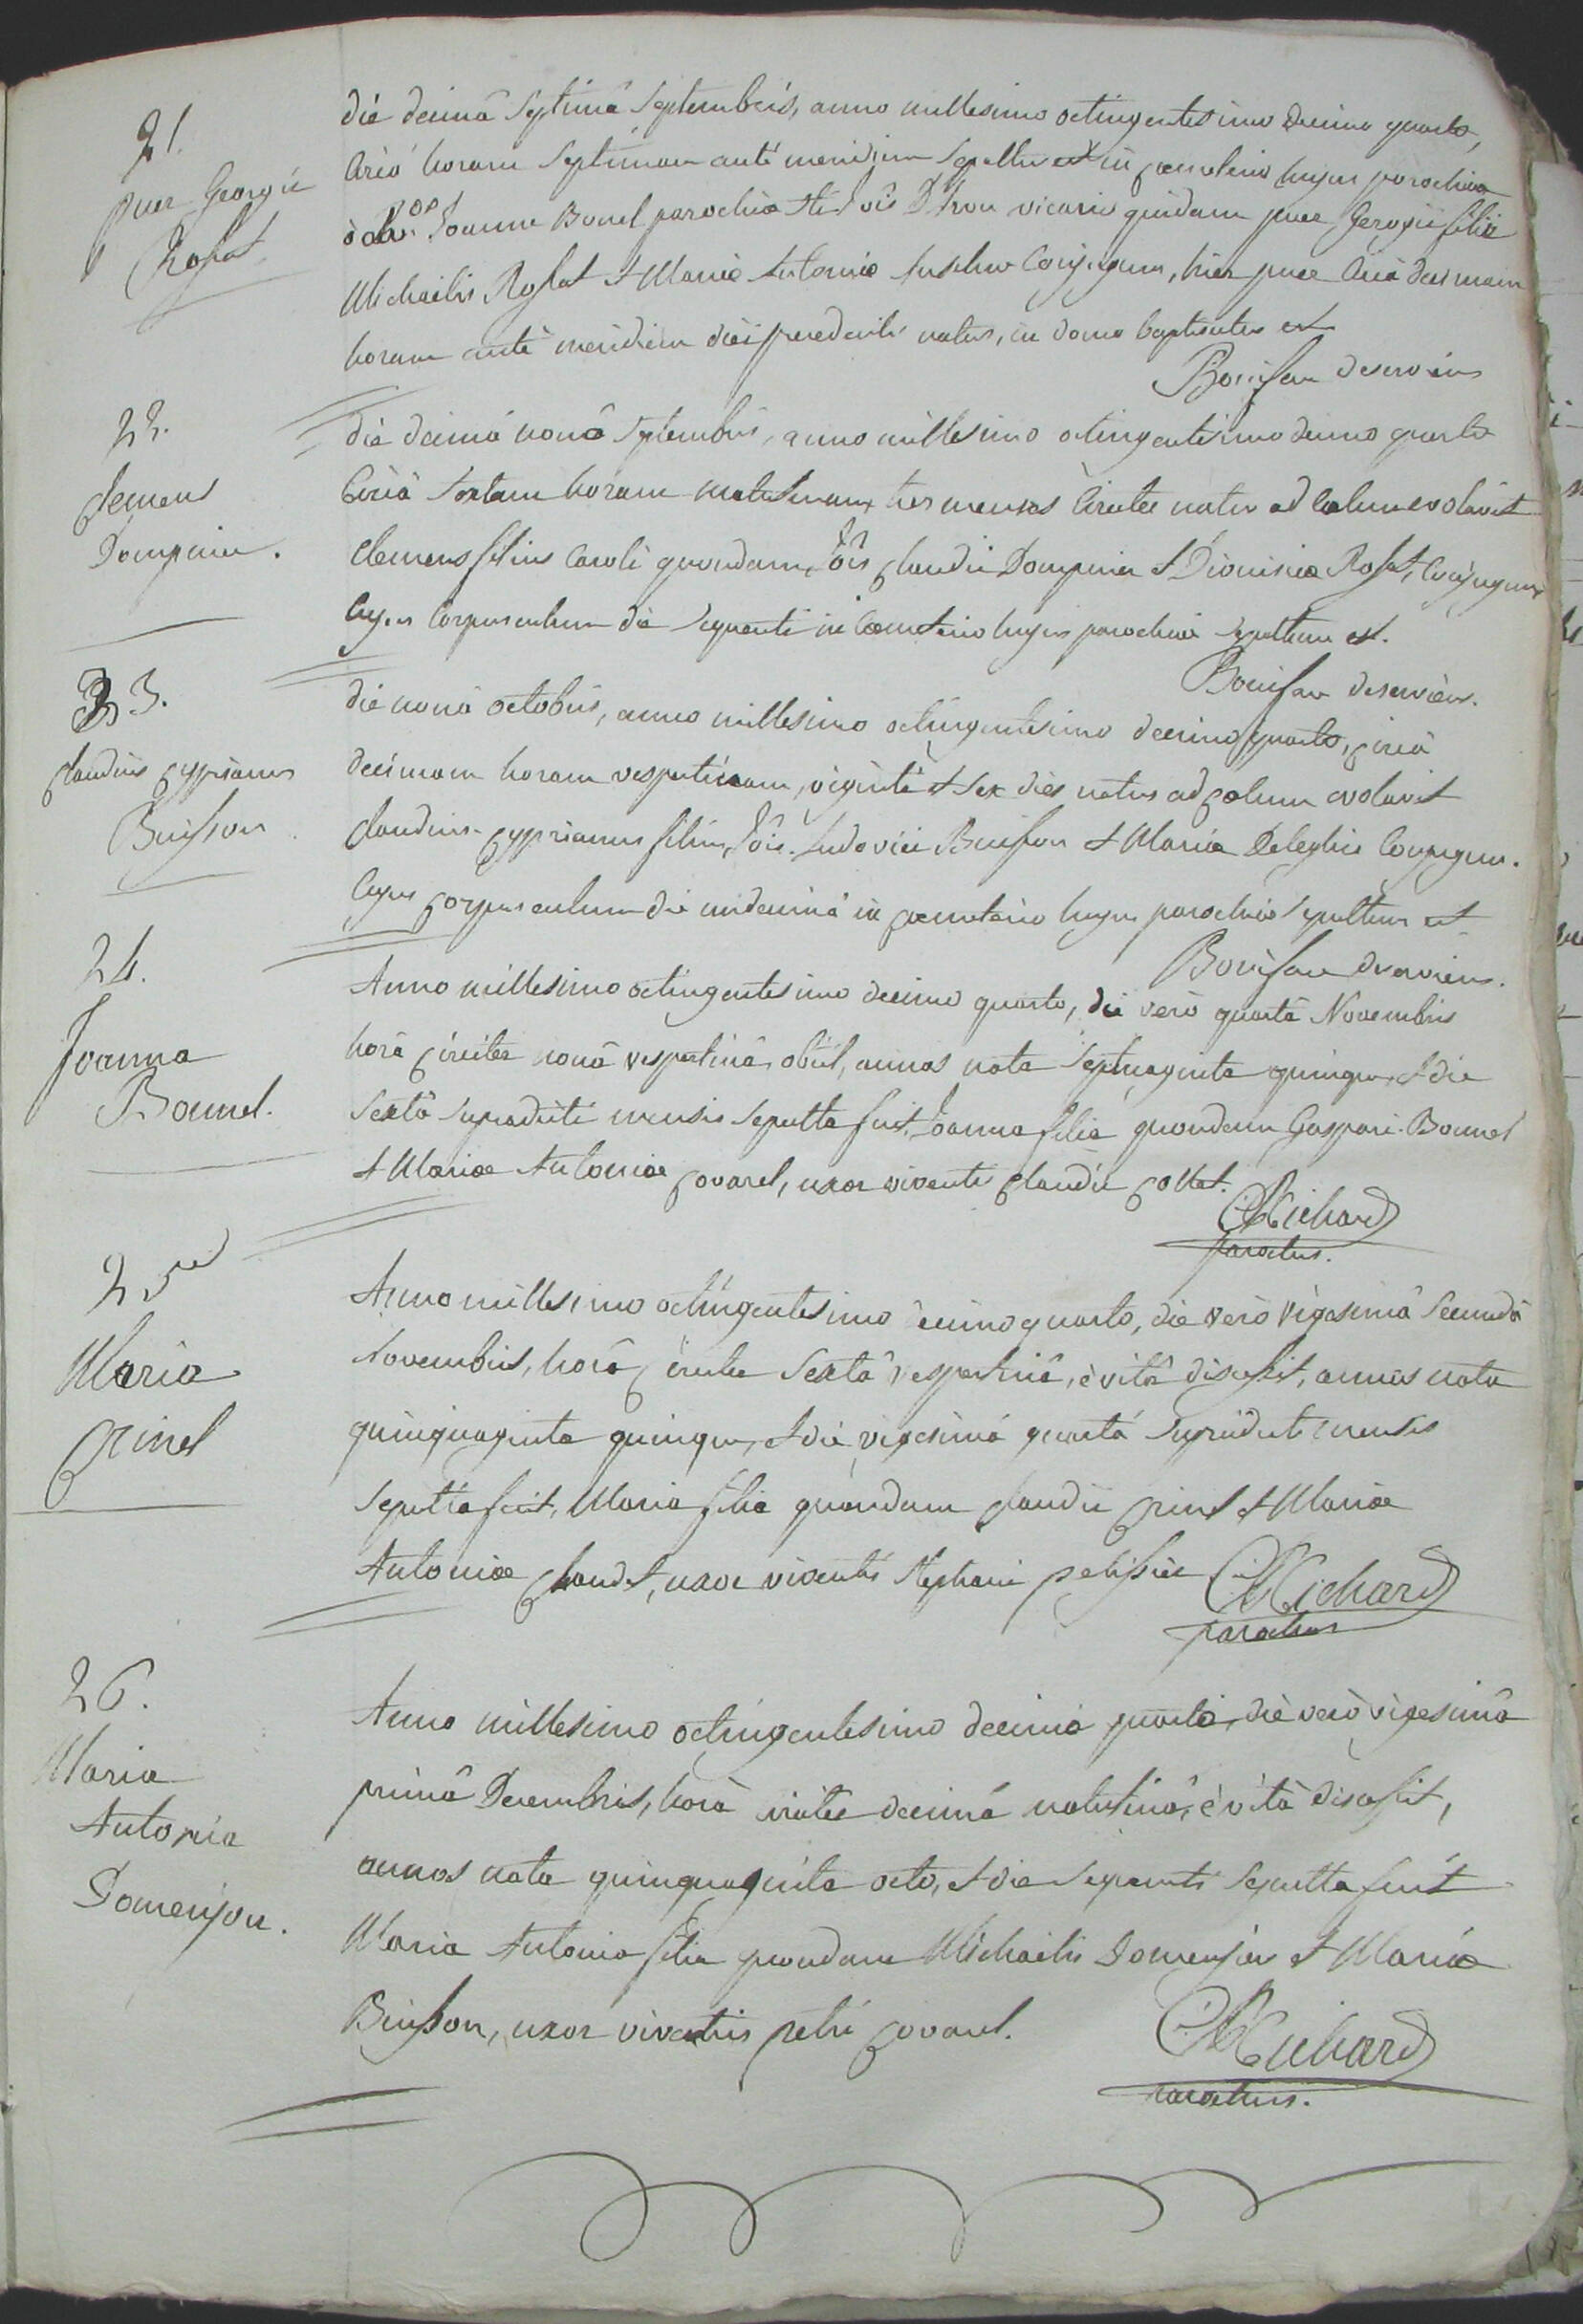 21.
puer Georgii
Rossat
die decimâ septimâ septembris, anno millesimo octingentesimo decimo quarto,
circà horam septimam antè meridiem sepultus est in coemeterio hujus parochiae
à Joanne Bonel parochiae Sti Jois vicario quidam puer Georgii filii
Michaelis Rossat et Mariae Antoniae conjugum, hic puer circà decimam
horam antè meridiem diei precedenti natus, in domo baptisatus est
Bouisson deserviens
22.
Clemens
Dompnier.
die decimâ nonâ septembris, anno millesimo octingentesimo decimo quarto
circà sextam horam matutinam, tres menses circiter natus ad coelum evolavit
Clemens filius Caroli quondam Jois Claudii Dompnier et Dionisiae Rossat, conjugum
cujus corpusculum die sequenti in coemeterio hujus parochiae sepultum est.
Bouisson deserviens.
23.
Claudius Cyprianus
Buisson
die nonâ octobris, anno millesimo octingentesimo decimo quarto, circà
decimam horam vespertinam, viginti et sex dies natus ad coelum evolavit
Claudius-Cyprianus filius Jois. Ludovici Buisson et Mariae Deleglise conjugum.
cujus corpusculum die undecimâ in coemeterio hujus parochiae sepultum est
Bouisson deserviens.
24.
Joanna
Bonnel.
Anno millesimo octingentesimo decimo quarto, die verò quartâ Novembris
horâ circiter nonâ vespertinâ obiit, annos nata septuaginta quinque, et die
sextâ supradicti mensis sepulta fuit, Joanna filia quondam Gaspari Bonnel
et Mariae Antoniae Covarel, uxor viventi Claudii Collet.
Richard
parochus.
25
Maria
Crinel
Anno millesimo octingentesimo decimo quarto, die verò vigesimâ secundâ
Novembris, horâ circiter sextâ vespertinâ, è vitâ discessit, annos nata
quinquaginta quinque, et die vigesimâ quartâ supradicti mensis
sepulta fuit, Maria filia quondam Claudii Crinel et Mariae
Antoniae Claudet, uxor viventis Stephani pelissier
Richard
parochus
26.
Maria
Antonia
Domenjon.
Anno millesimo octingentesimo decimo quarto, die verò vigesimâ
primâ Decembris, horâ circiter decimâ matutinâ, è vitâ discessit,
annos nata quinquaginta octo, et die sequenti sepulta fuit
Maria Antonia filia quondam Michaelis Domenjon et Mariae
Buisson, uxor viventis petri Covarel.
Richard
parochus.